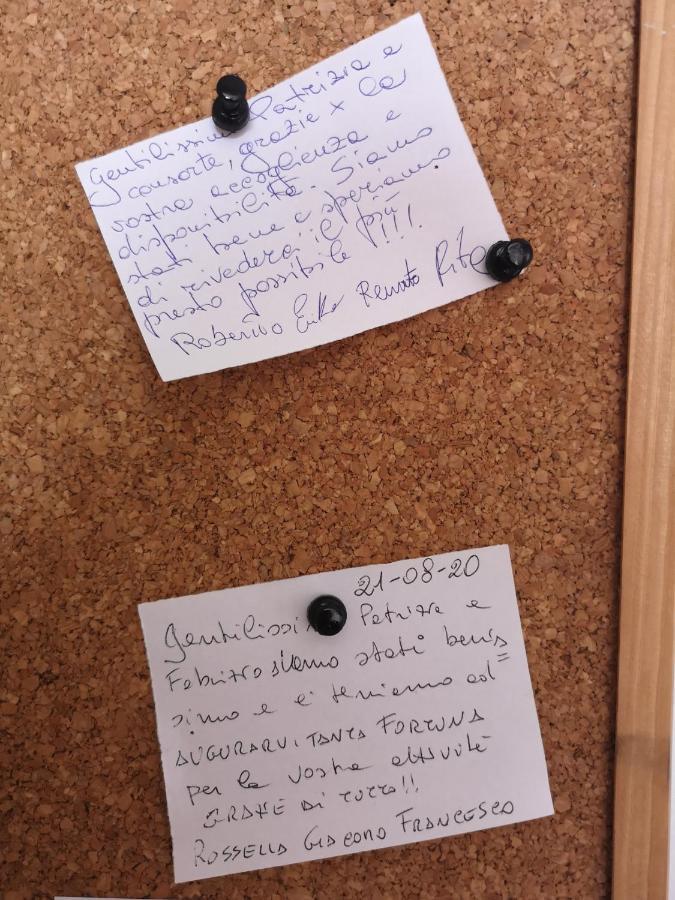 Gentilissimi Patrizia e
consorte, grazie x la
vostra accoglienza e
disponibilità. Siamo
stati bene e speriamo
di rivederci il più
presto possibile!!!
Roberto Renato Rita
21-08-20
Gentilissimi Patrizia e
Fabrizio siamo stati benis
simo e ci teniamo ad
AUGURARVI TANTA FORTUNA
per la vostra attività
GRAZIE DI TUTTO!!
ROSSELLA GIACOMO FRANCESCO